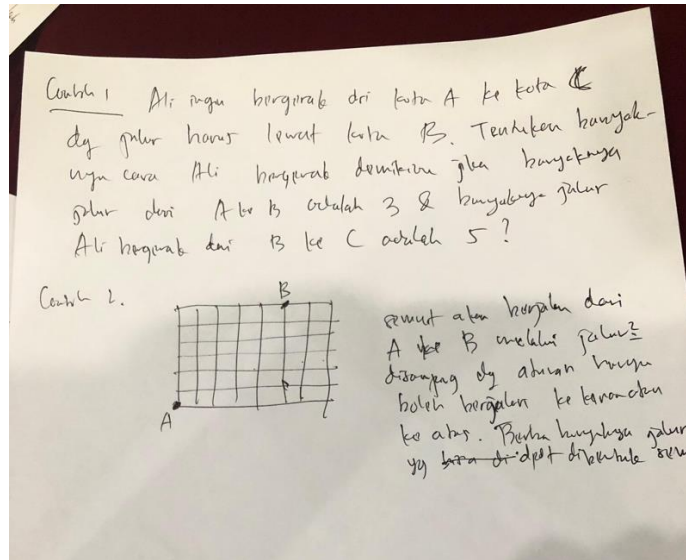 Contoh 1 Ali ingin bergerak dri kota A ke kota C
dg jalur harus lewat kota B. Tentukan banyak-
nya cara Ali bergerak demikian jika banyaknya
jalur dari A ke B adalah 3 & banyaknya jalur
Ali bergerak dari B ke C adalah 5?
Contoh 2.
B
A
semut akan berjalan dari
A ke B melalui jalur2
disamping dg aturan hanya
boleh berjalan ke kanan atau
ke atas. Berapa banyaknya jalur
yg dpt dibentuk